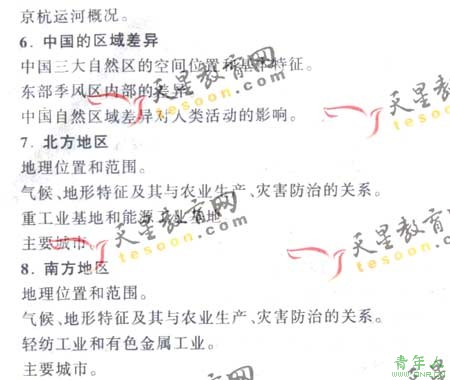 京杭运河概况。
6. 中国的区域差异
中国三大自然区的空间位置和基本特征。
东部季风区内部的差异。
中国自然区域差异对人类活动的影响。
7. 北方地区
地理位置和范围。
气候、地形特征及其与农业生产、灾害防治的关系。
重工业基地和能源工业基地
主要城市。
8. 南方地区
地理位置和范围。
气候、地形特征及其与农业生产、灾害防治的关系。
轻纺工业和有色金属工业。
主要城市。
天星教育网
tesoon.com
天星教育网
tesoon.com
天星教育网
tesoon.com
天星教育网
tesoon.com
青年人